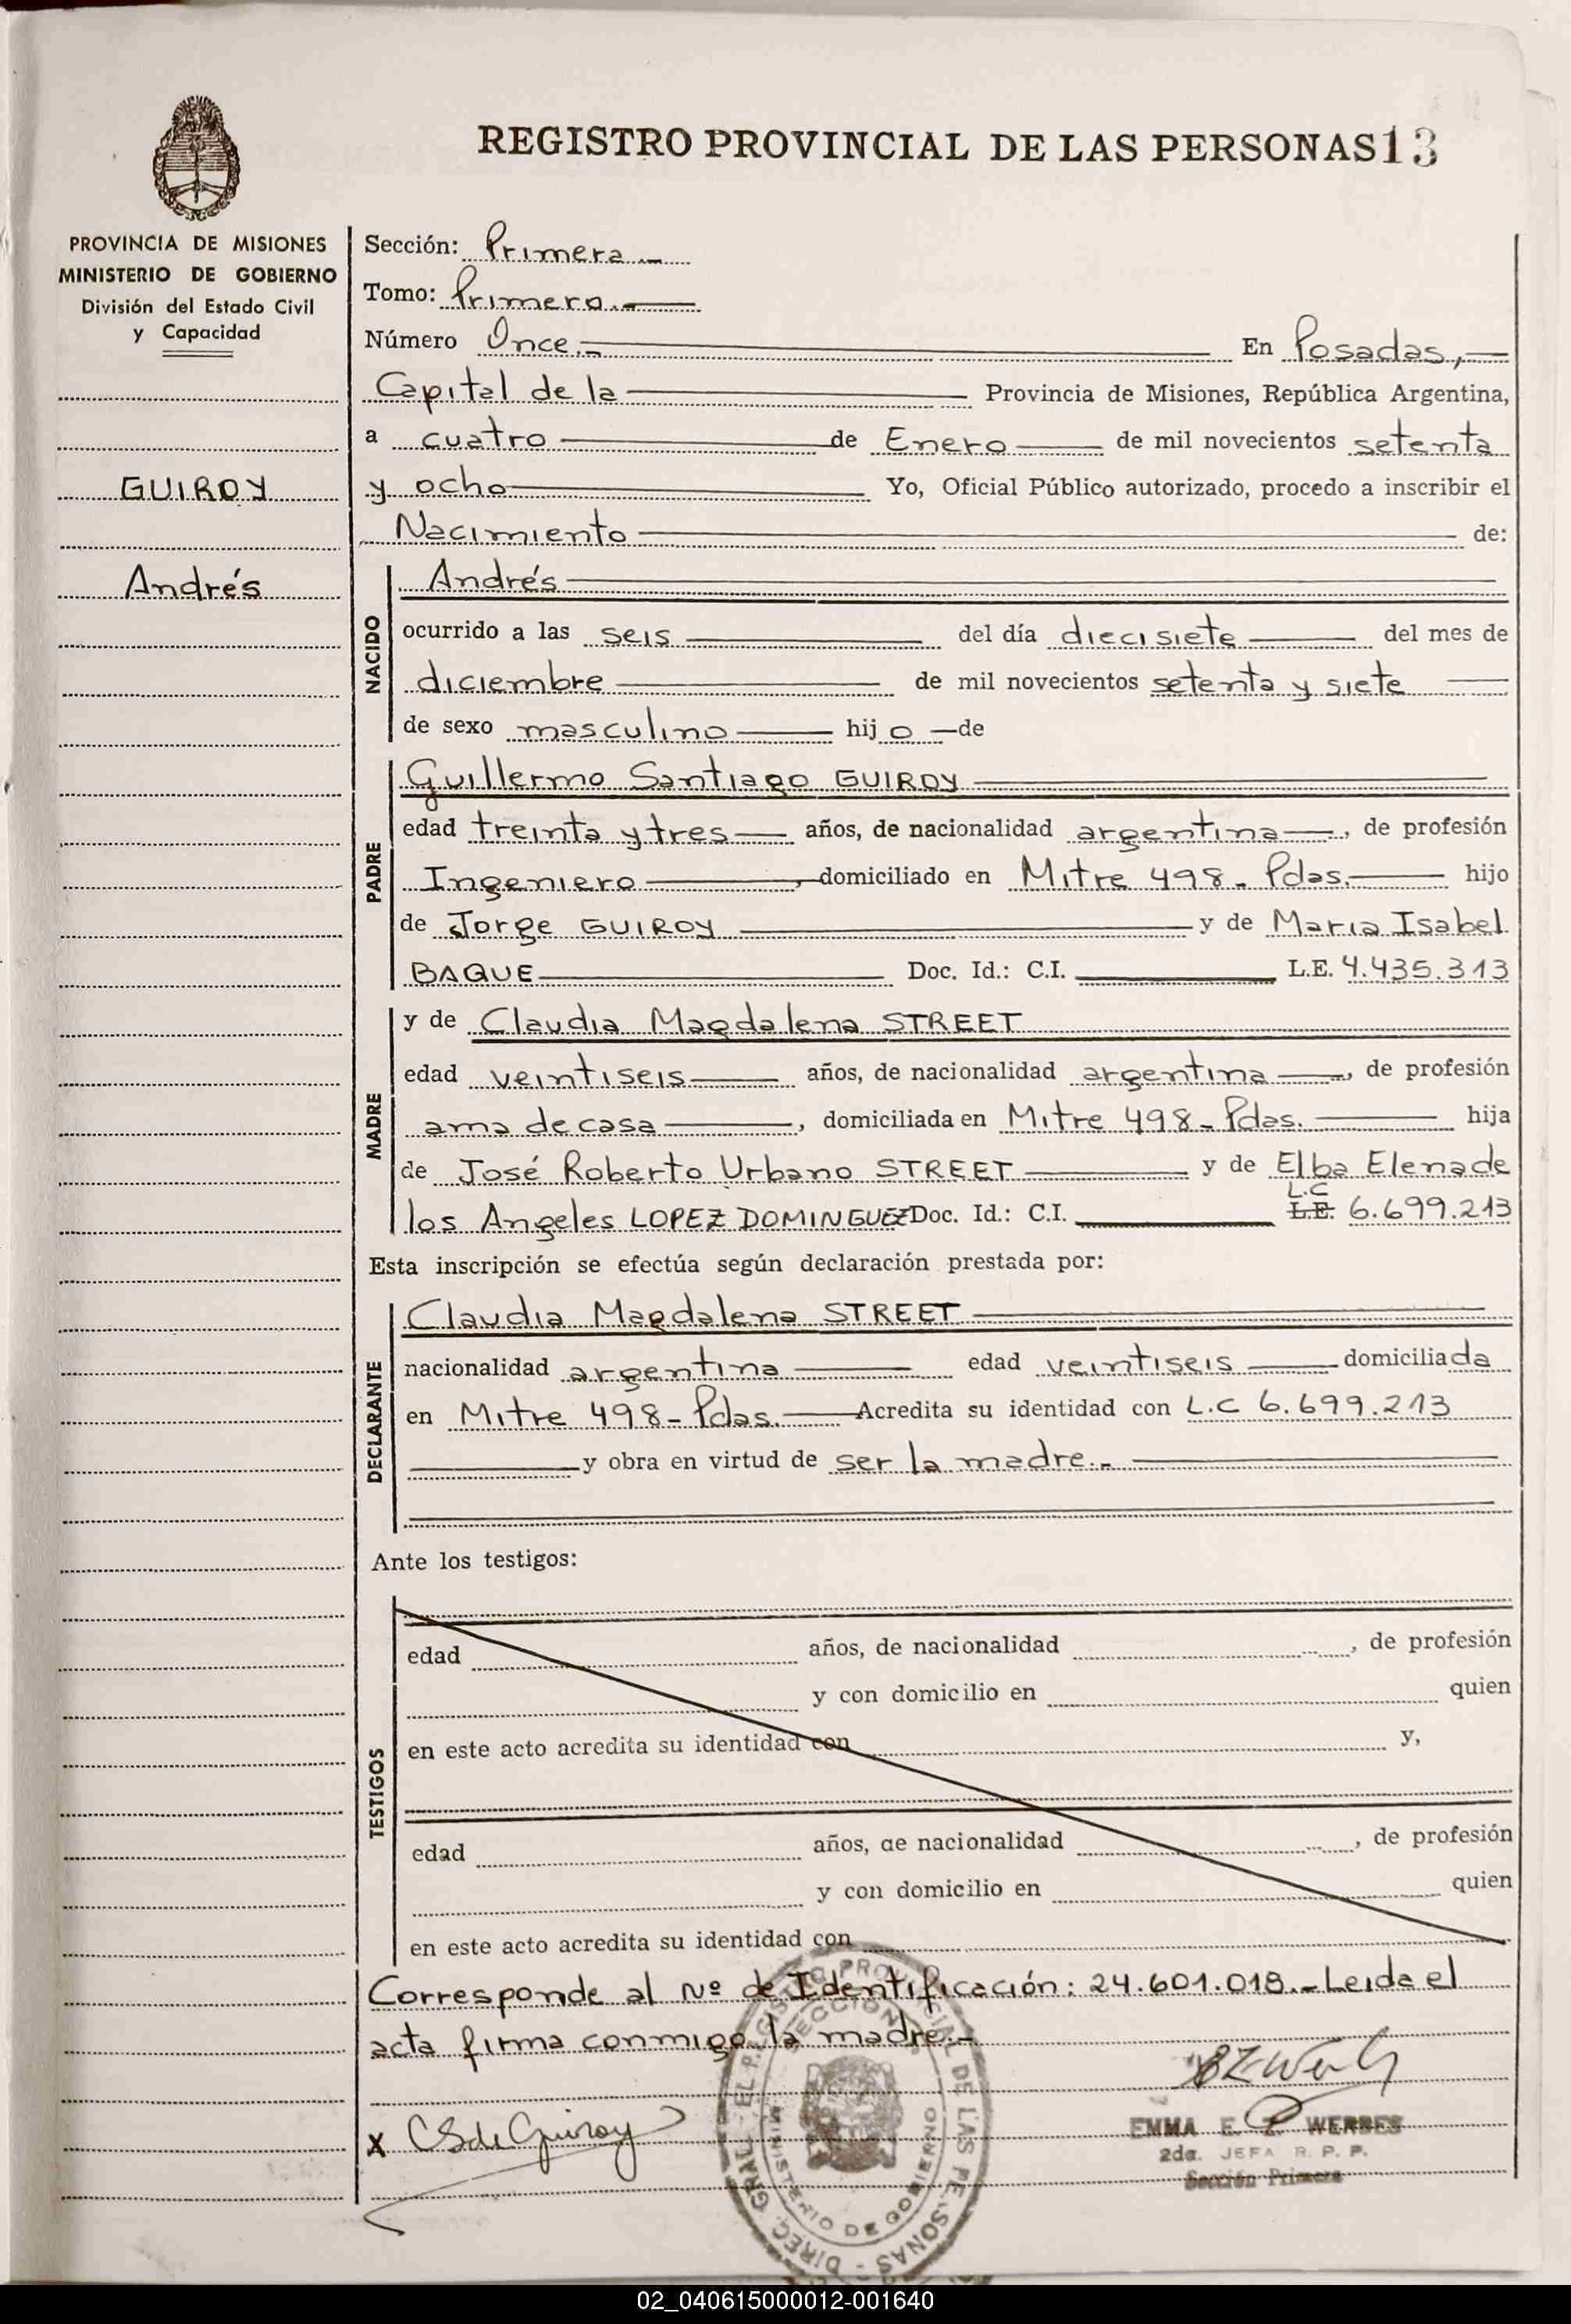 REGISTRO PROVINCIAL DE LAS PERSONAS 13
PROVINCIA DE MISIONES
MINISTERIO DE GOBIERNO
División del Estado Civil
y Capacidad
GUIROY
Andrés
Sección: Primera.-
Tomo: Primero.-
Número Once.- En Posadas,
Capital de la Provincia de Misiones, República Argentina,
a cuatro de Enero de mil novecientos setenta
y ocho Yo, Oficial Público autorizado, procedo a inscribir el
Nacimiento de:
NACIDO
Andrés
ocurrido a las seis del día diecisiete del mes de
diciembre de mil novecientos setenta y siete
de sexo masculino hijo de
PADRE
Guillermo Santiago GUIROY
edad treinta y tres años, de nacionalidad argentina, de profesión
Ingeniero, domiciliado en Mitre 498 - Pdas. hijo
de Jorge GUIROY y de Maria Isabel
BAQUE Doc. Id.: C.I. L.E. 4.435.313
MADRE
y de Claudia Magdalena STREET
edad veintiseis años, de nacionalidad argentina, de profesión
ama de casa, domiciliada en Mitre 498 - Pdas. hija
de José Roberto Urbano STREET y de Elba Elena de
los Angeles LOPEZ DOMINGUEZ Doc. Id.: C.I. L.E. L.C 6.699.213
Esta inscripción se efectúa según declaración prestada por:
DECLARANTE
Claudia Magdalena STREET
nacionalidad argentina edad veintiseis domiciliada
en Mitre 498 - Pdas. Acredita su identidad con L.C 6.699.213
y obra en virtud de ser la madre.-
Ante los testigos:
TESTIGOS
edad años, de nacionalidad , de profesión
y con domicilio en quien
en este acto acredita su identidad con y,
edad años, de nacionalidad , de profesión
y con domicilio en quien
en este acto acredita su identidad con
Corresponde al Nº de Identificación: 24.601.018.- Leida el
acta firma conmigo la madre.-
x CS de Guiroy
EMMA E. Z. WERBES
2da. JEFA R. P. P.
Sección Primera
DIREC. GRAL. DEL REGISTRO PROVINCIAL DE LAS PERSONAS
MINISTERIO DE GOBIERNO
02_040615000012-001640